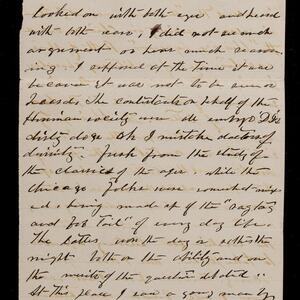 looked on with both eyes and heard
with both ears, I did not see much
argument or hear much reason-
ing I supposed at the time it was
because it was not to be seen or
heard. The contestants on behalf of the
Hinman society were all embryo D.Ds
dirty dogs Oh I mistake doctors of
divinity. Fresh from the study of
the classics of the ages. while the
Chicago Folks were somewhat mix-
ed being made up of the "Rag tag
and Bob Tail" of every day life.
The latter won the day or rather the
night both on the ability and on
the merits of the question debated"
At this place I saw a good many